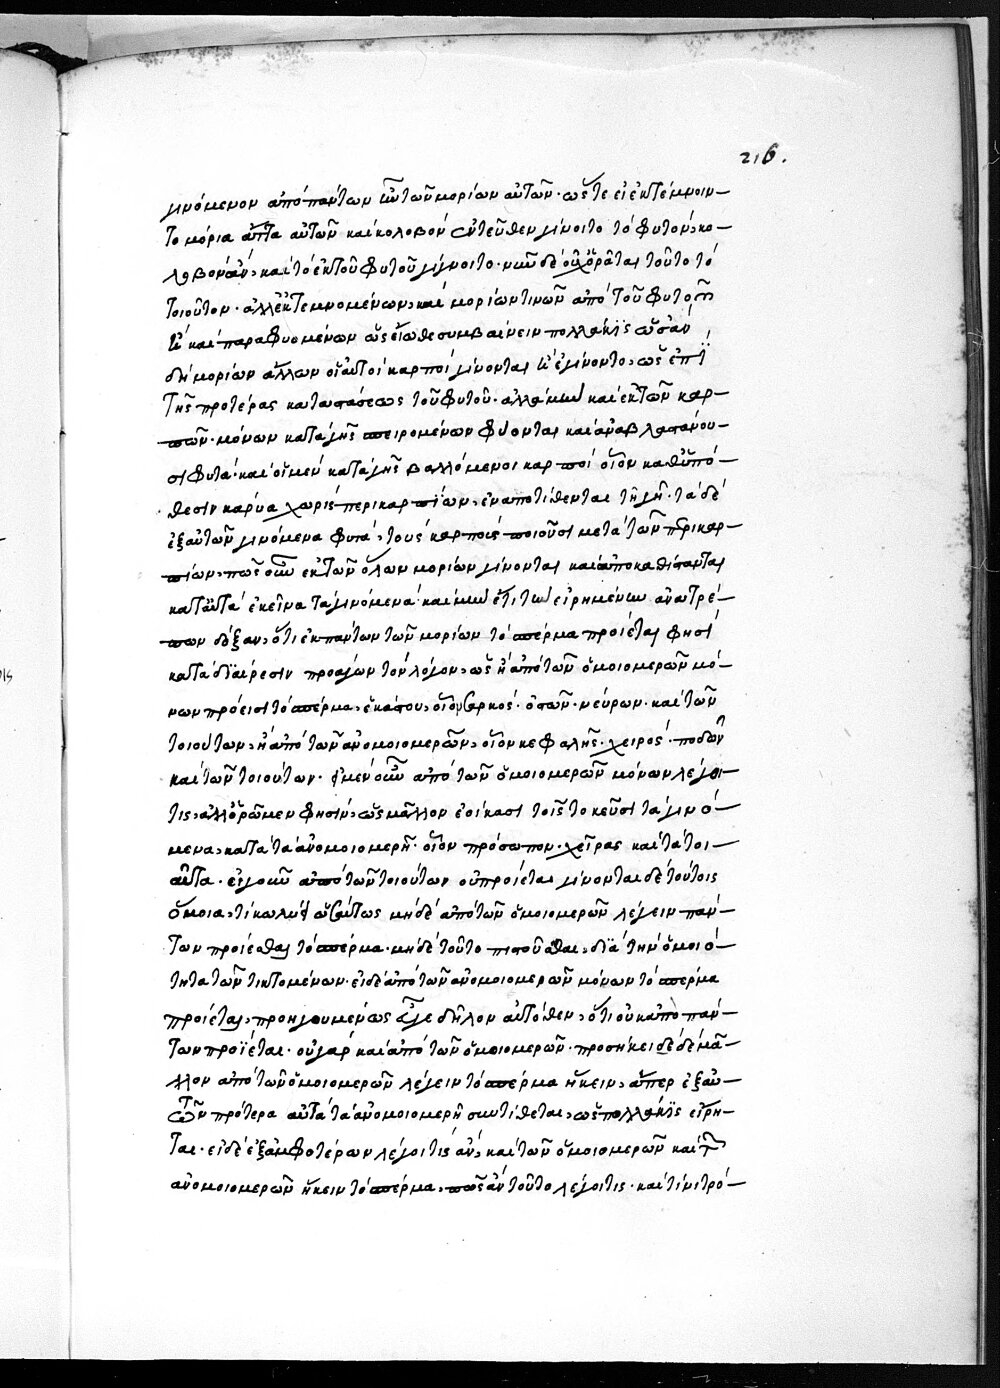 216.
γινόμενον ἀπὸ πάντων τῶν μορίων αὐτῶν· ὥστε εἰ ἐκτέμνοιν-
το μόρια ἄττα αὐτῶν καὶ κολοβὸν ἐντεῦθεν γίνοιτο τὸ φυτόν, κο-
λοβὸν ἂν, καὶ τὸ ἐκ τοῦ φυτοῦ γίγνοιτο· νῦν δὲ οὐχ ὁρᾶται τοῦτο τὸ
τοιοῦτον· ἀλλ' ἐκτεμνομένων, καὶ μορίων τινῶν ἀπὸ τοῦ φυτοῦ
καὶ παραφυομένων ὡς εἴωθε συμβαίνειν πολλάκις ὡσὰν
δὴ μορίων ἄλλων οἱ αὐτοὶ καρποὶ γίνονται ἐγίνοντο, ὡς ἐπὶ
τῆς προτέρας καταστάσεως τοῦ φυτοῦ· ἀλλὰ μὴν καὶ ἐκ τῶν καρ-
πῶν· μόνων κατὰ γῆς σπειρομένων φύονται καὶ ἀναβλαστάνου-
σι φυτά· καὶ οἱ μὲν κατὰ γῆς βαλλόμενοι καρποὶ οἷον καθ' ὑπό-
θεσιν κάρυα χωρὶς περικαρπίων, ἐναποτίθενται τῇ γῇ· τὰ δὲ
ἐξ αὐτῶν γινόμενα φυτὰ, τοὺς καρποὺς ποιοῦσι μετὰ τῶν περικαρ-
πίων, πῶς οὖν ἐκ τῶν ὅλων μορίων γίνονται καὶ ἀποκαθίστανται
κατ' αὐτὰ ἐκεῖνα τὰ γινόμενα· καὶ μὴν ἔτι τὴν εἰρημένην ἀνατρέ-
πων δόξαν, ὅτι ἐκ πάντων τῶν μορίων τὸ σπέρμα προίεται φησὶ
κατὰ διαίρεσιν προάγων τὸν λόγον, ὡς ἢ ἀπὸ τῶν ὁμοιομερῶν μό-
νων πρόεισι τὸ σπέρμα, ἑκάστου, οἷον σαρκός· ὀστῶν· νεύρων· καὶ τῶν
τοιούτων, ἢ ἀπὸ τῶν ἀνομοιομερῶν, οἷον κεφαλῆς· χειρός· ποδῶν
καὶ τῶν τοιούτων· εἰ μὲν οὖν ἀπὸ τῶν ὁμοιομερῶν μόνων λέγοι
τις, ἀλλ' ὁρῶμεν φησίν, ὡς μᾶλλον ἐοίκασι τοῖς τοκεῦσι τὰ γινό-
μενα, κατὰ τὰ ἀνομοιομερῆ· οἷον πρόσωπον· χεῖρας καὶ τὰ τοι-
αῦτα· εἰ γοῦν ἀπὸ τῶν τοιούτων οὐ προίεται γίνονται δὲ τούτοις
ὅμοια, τί κωλύει οὕτως μηδὲ ἀπὸ τῶν ὁμοιομερῶν λέγειν πάν-
των προίεσθαι τὸ σπέρμα· μηδὲ τοῦτο πιστοῦσθαι, διὰ τὴν ὁμοιό-
τητα τῶν τικτομένων· εἰ δὲ ἀπὸ τῶν ἀνομοιομερῶν μόνων τὸ σπέρμα
προίεται, προηγουμένως δῆλον αὐτόθεν, ὅτι οὐκ ἀπὸ πάν-
των προΐεται· οὐ γὰρ καὶ ἀπὸ τῶν ὁμοιομερῶν· προσήκει δὲ δὲ μᾶ-
λλον ἀπὸ τῶν ὁμοιομερῶν λέγειν τὸ σπέρμα ἥκειν, ἅπερ ἐξ αὐ-
τῶν πρότερα αὐτὰ τὰ ἀνομοιομερῆ συντίθεται, ὡς πολλάκις εἴρη-
ται· εἰ δὲ ἐξ ἀμφοτέρων λέγοι τις ἂν, καὶ τῶν ὁμοιομερῶν καὶ τῶν
ἀνομοιομερῶν ἥκειν τὸ σπέρμα, πῶς ἂν τοῦτο λέγοι τις· καὶ τίνι τρό-